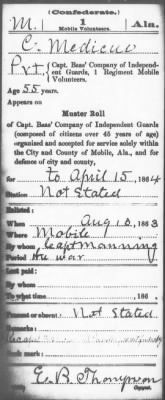 (Confederate.)
M. 1 Ala.
Mobile Volunteers.
C. Medicus
Pvt., Capt. Bess' Company of Independent Guards, 1 Regiment Mobile Volunteers.
Age 55 years.
Appears on
Muster Roll
of Capt. Bess' Company of Independent Guards
(composed of citizens over 45 years of age)
organized and accepted for service solely within
the City and County of Mobile, Ala., and for
defence of city and county,
for to April 15, 1864
Station Not Stated
Enlisted:
When Aug 10, 1863
Where Mobile
By whom Capt Manning
Period the war
Last paid:
By whom
To what time , 186 .
Present or absent: Not Stated
Remarks:
Book mark:
E. B. Thompson
Copyist.